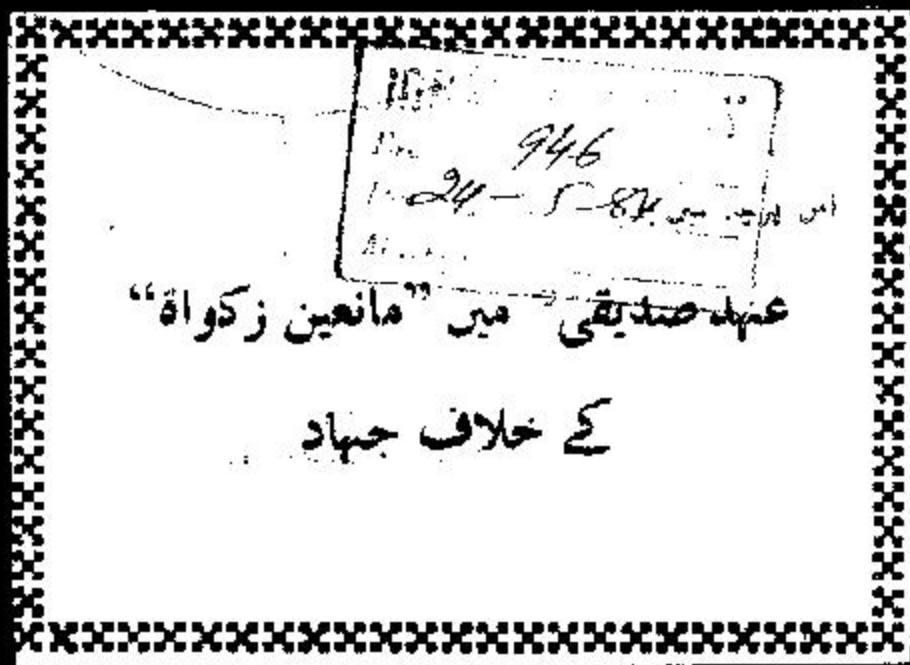 946
24-5-87
اس پرچہ میں
عہد صدیقی میں ”مانعین زکواۃ“
کے خلاف جہاد